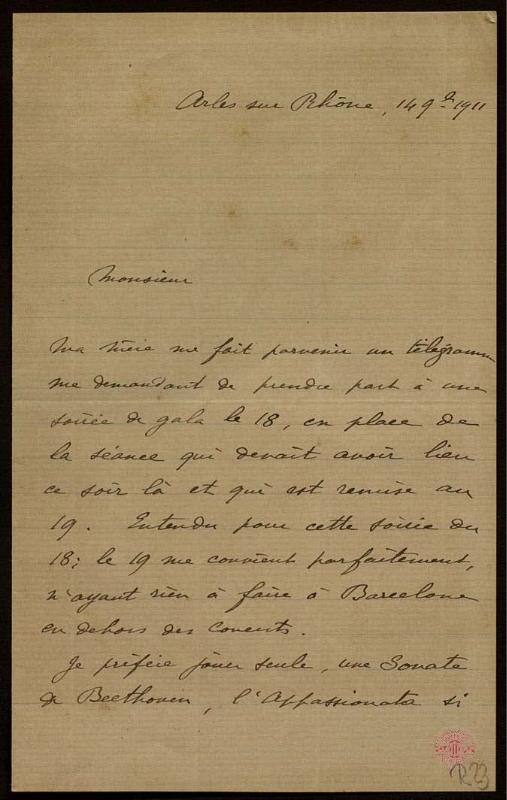 Arles sur Rhône, 14 9bre 1911
Monsieur
Ma mère me fait parvenir un télégramme
me demandant de prendre part à une
soirée de gala le 18, en place de
la séance qui devait avoir lieu
ce soir là et qui est remise au
19. Entendu pour cette soirée du
18; le 19 me convient parfaitement,
n'ayant rien à faire à Barcelone
en dehors des concerts.
Je préfère jouer seule, une Sonate
de Beethoven, l'Appassionata si
R23